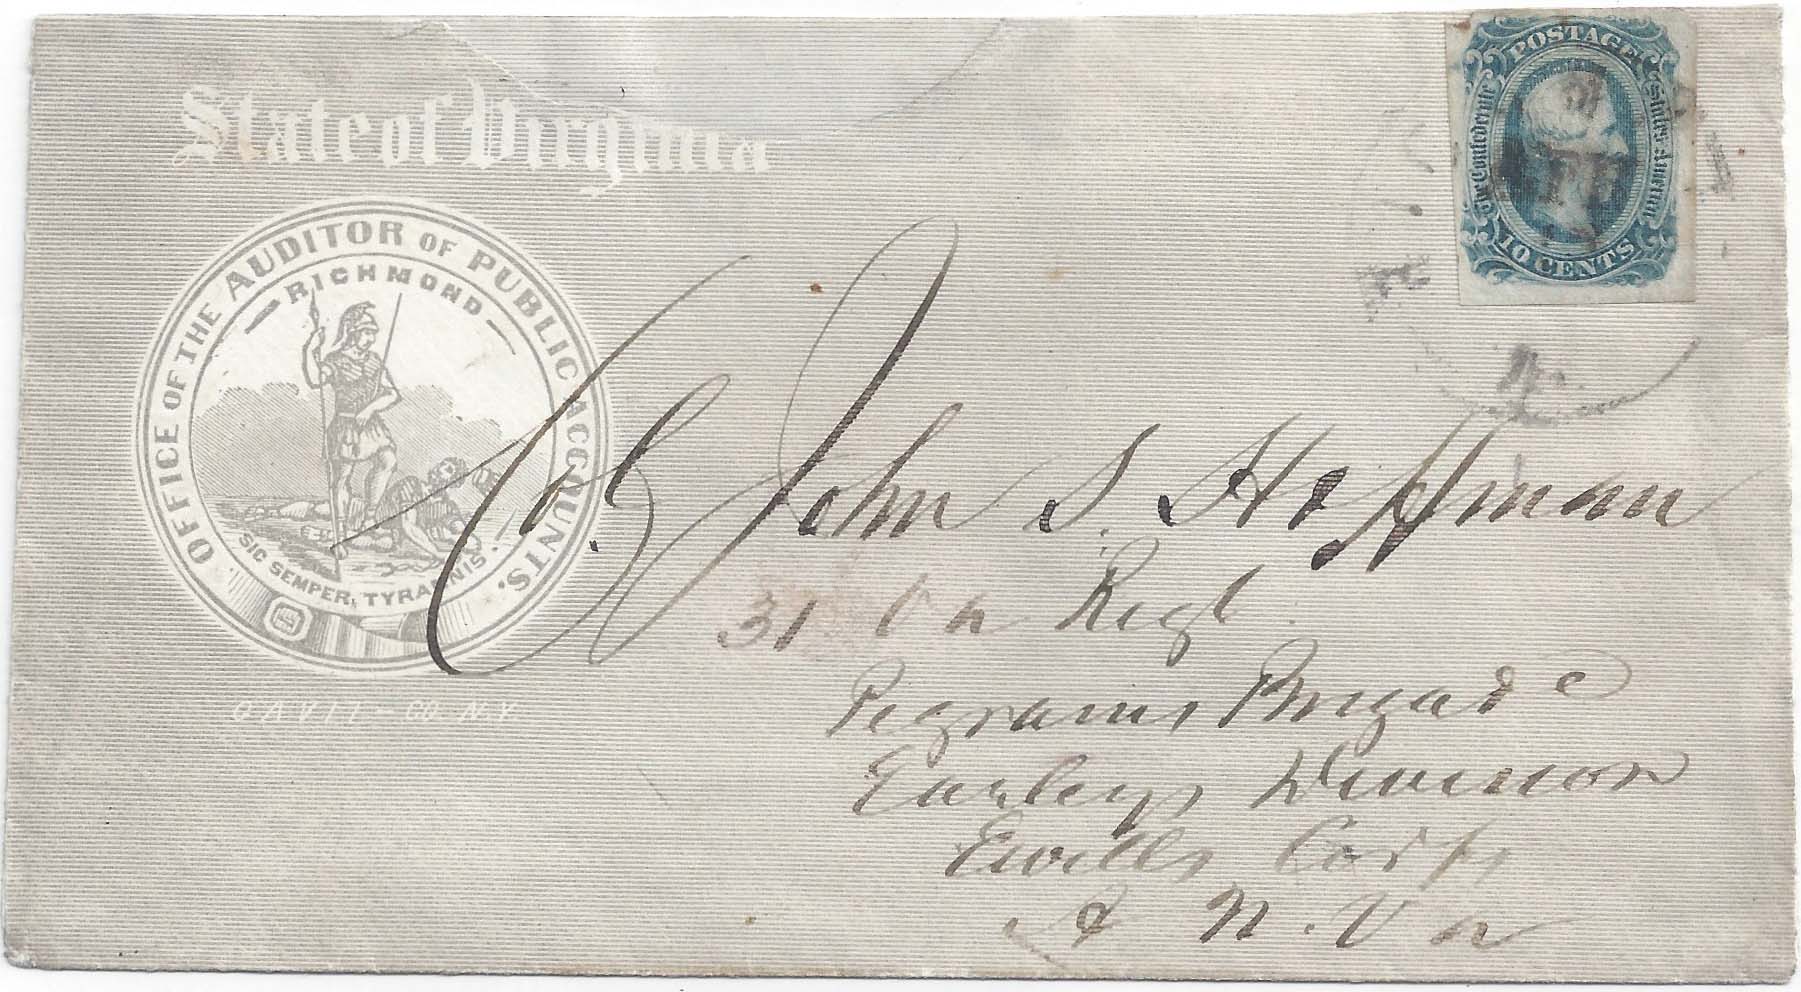 State of Virginia
OFFICE OF THE AUDITOR OF PUBLIC ACCOUNTS.
RICHMOND
SIC SEMPER, TYRANNIS.
GAVIT-CO. N.Y
POSTAGE
The Confederate
States America
10 CENTS
Col. John S. Hoffman
31 Va Regt.
Pegrams Brigade
Earleys Division
Ewells Corps
A N. Va